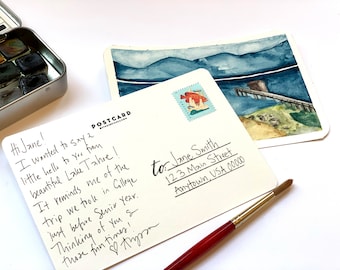 POSTCARD
Hi Jane!
I wanted to say a
little hello to you from
beautiful Lake Tahoe!
It reminds me of the
trip we took in College
just before Senior Year.
Thinking of you &
those fun times!
to: Jane Smith
123 Main Street
Anytown USA 00000